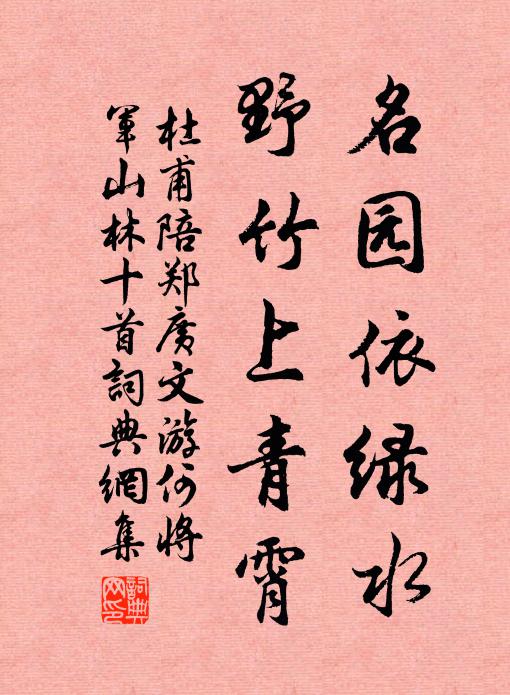 名园依绿水
野竹上青霄
杜甫陪郑廣文游何将
軍山林十首詞典網集
詞典网印